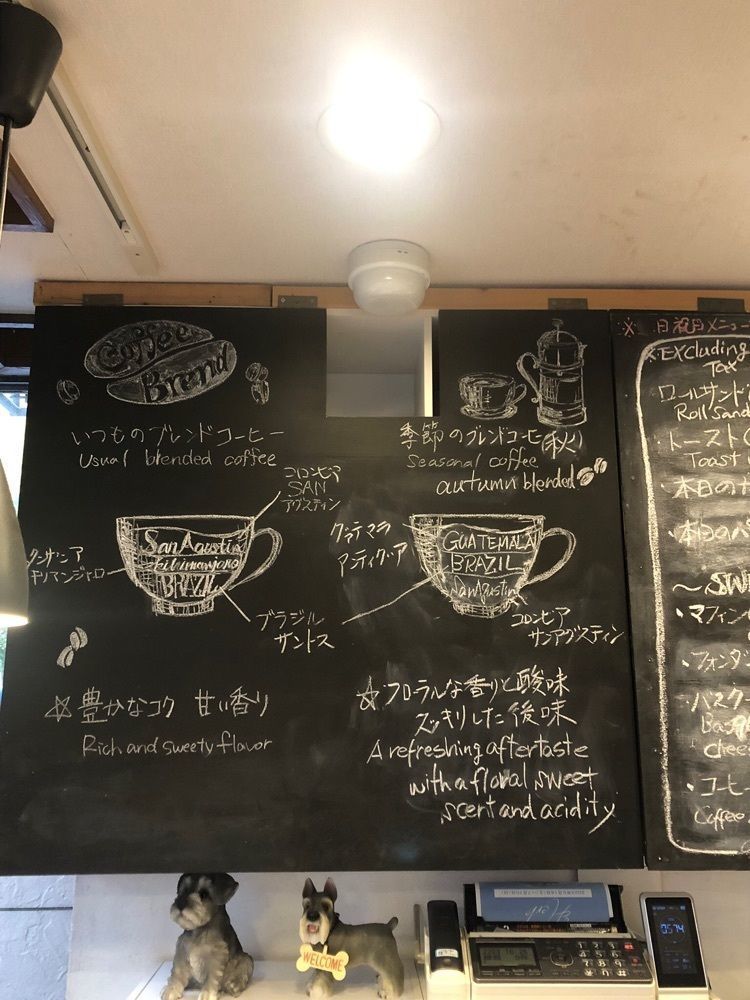 Coffee
Brend
いつものブレンドコーヒー
Usual blended coffee
コロンビア
SAN
アグスティン
San Agustin
kilimanjaro
BRAZIL
タンザニア
キリマンジャロ
ブラジル
サントス
☆豊かなコク 甘い香り
Rich and sweety flavor
季節のブレンドコーヒー(秋)
Seasonal coffee
autumn blended
グァテマラ
アンティグア
GUATEMALA
BRAZIL
SanAgustin
コロンビア
サンアグスティン
☆フローラルな香りと酸味
スッキリした後味
A refreshing aftertaste
with a floral sweet
scent and acidity
※日祝日メニュー
※Excluding
Tax
ロールサンド
Roll Sand
トースト
Toast
・本日の
・本日の
・マフィン
・フォンダ
・バスク
Bas
chee
・コーヒー
Coffee
WELCOME
0574